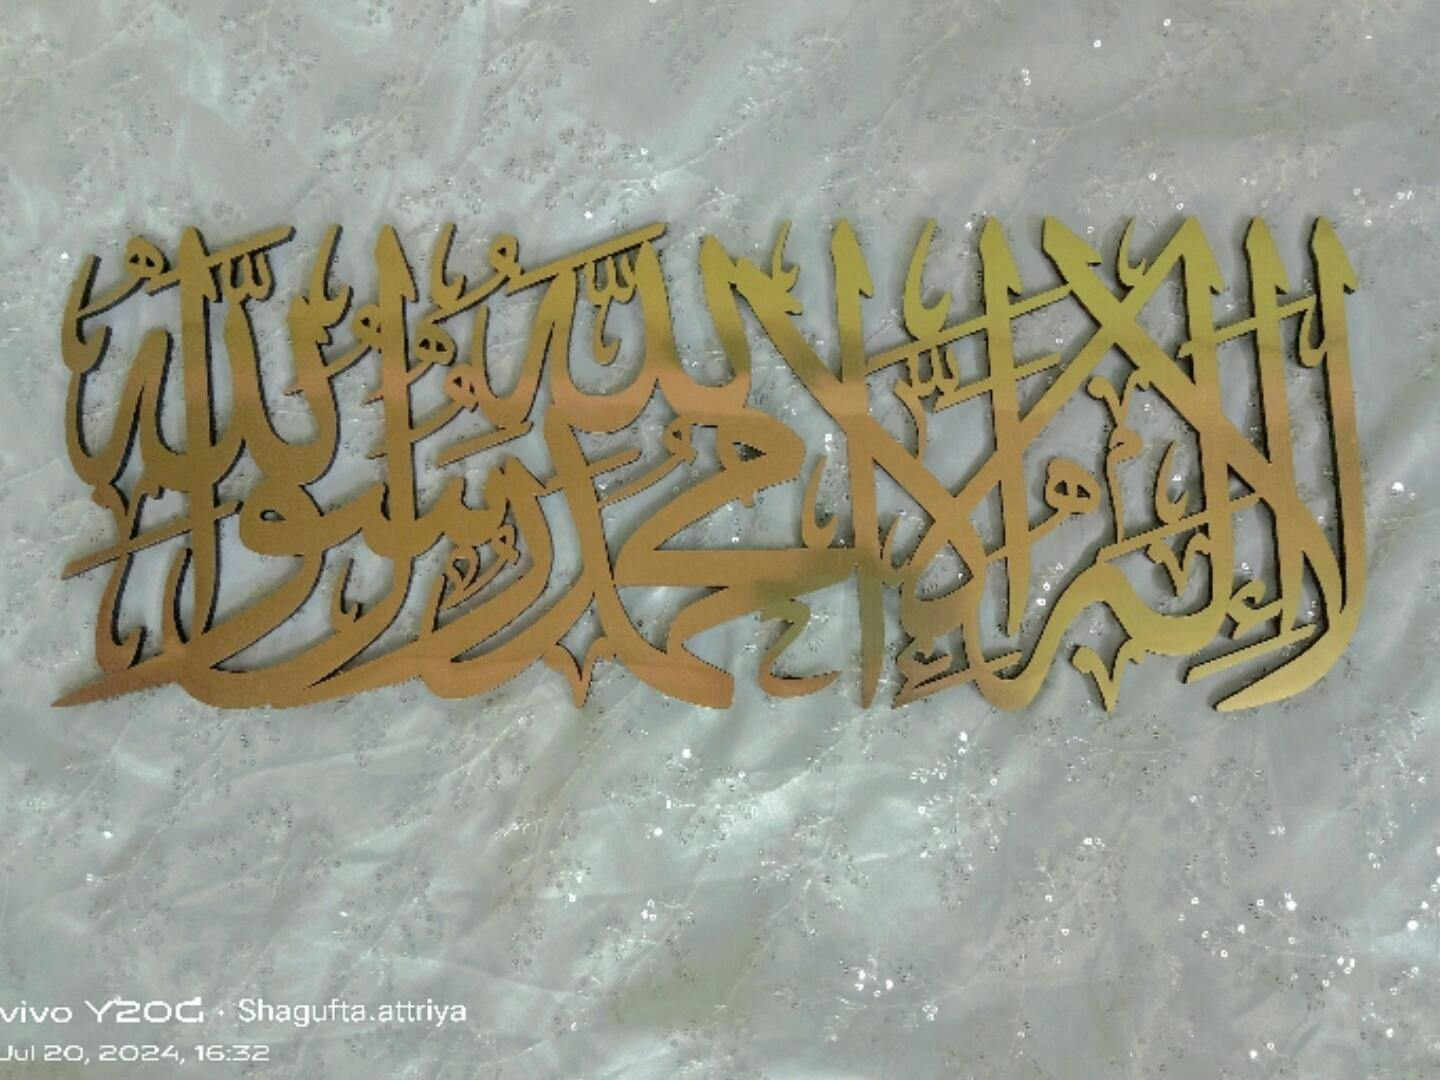 لا إله إلا الله محمد رسول الله
vivo Y20G · Shagufta.attriya
Jul 20, 2024, 16:32